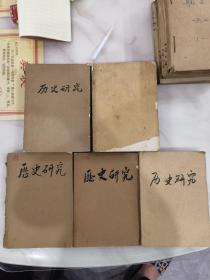 历史研究
歷史研究
歷史研究
历史研究